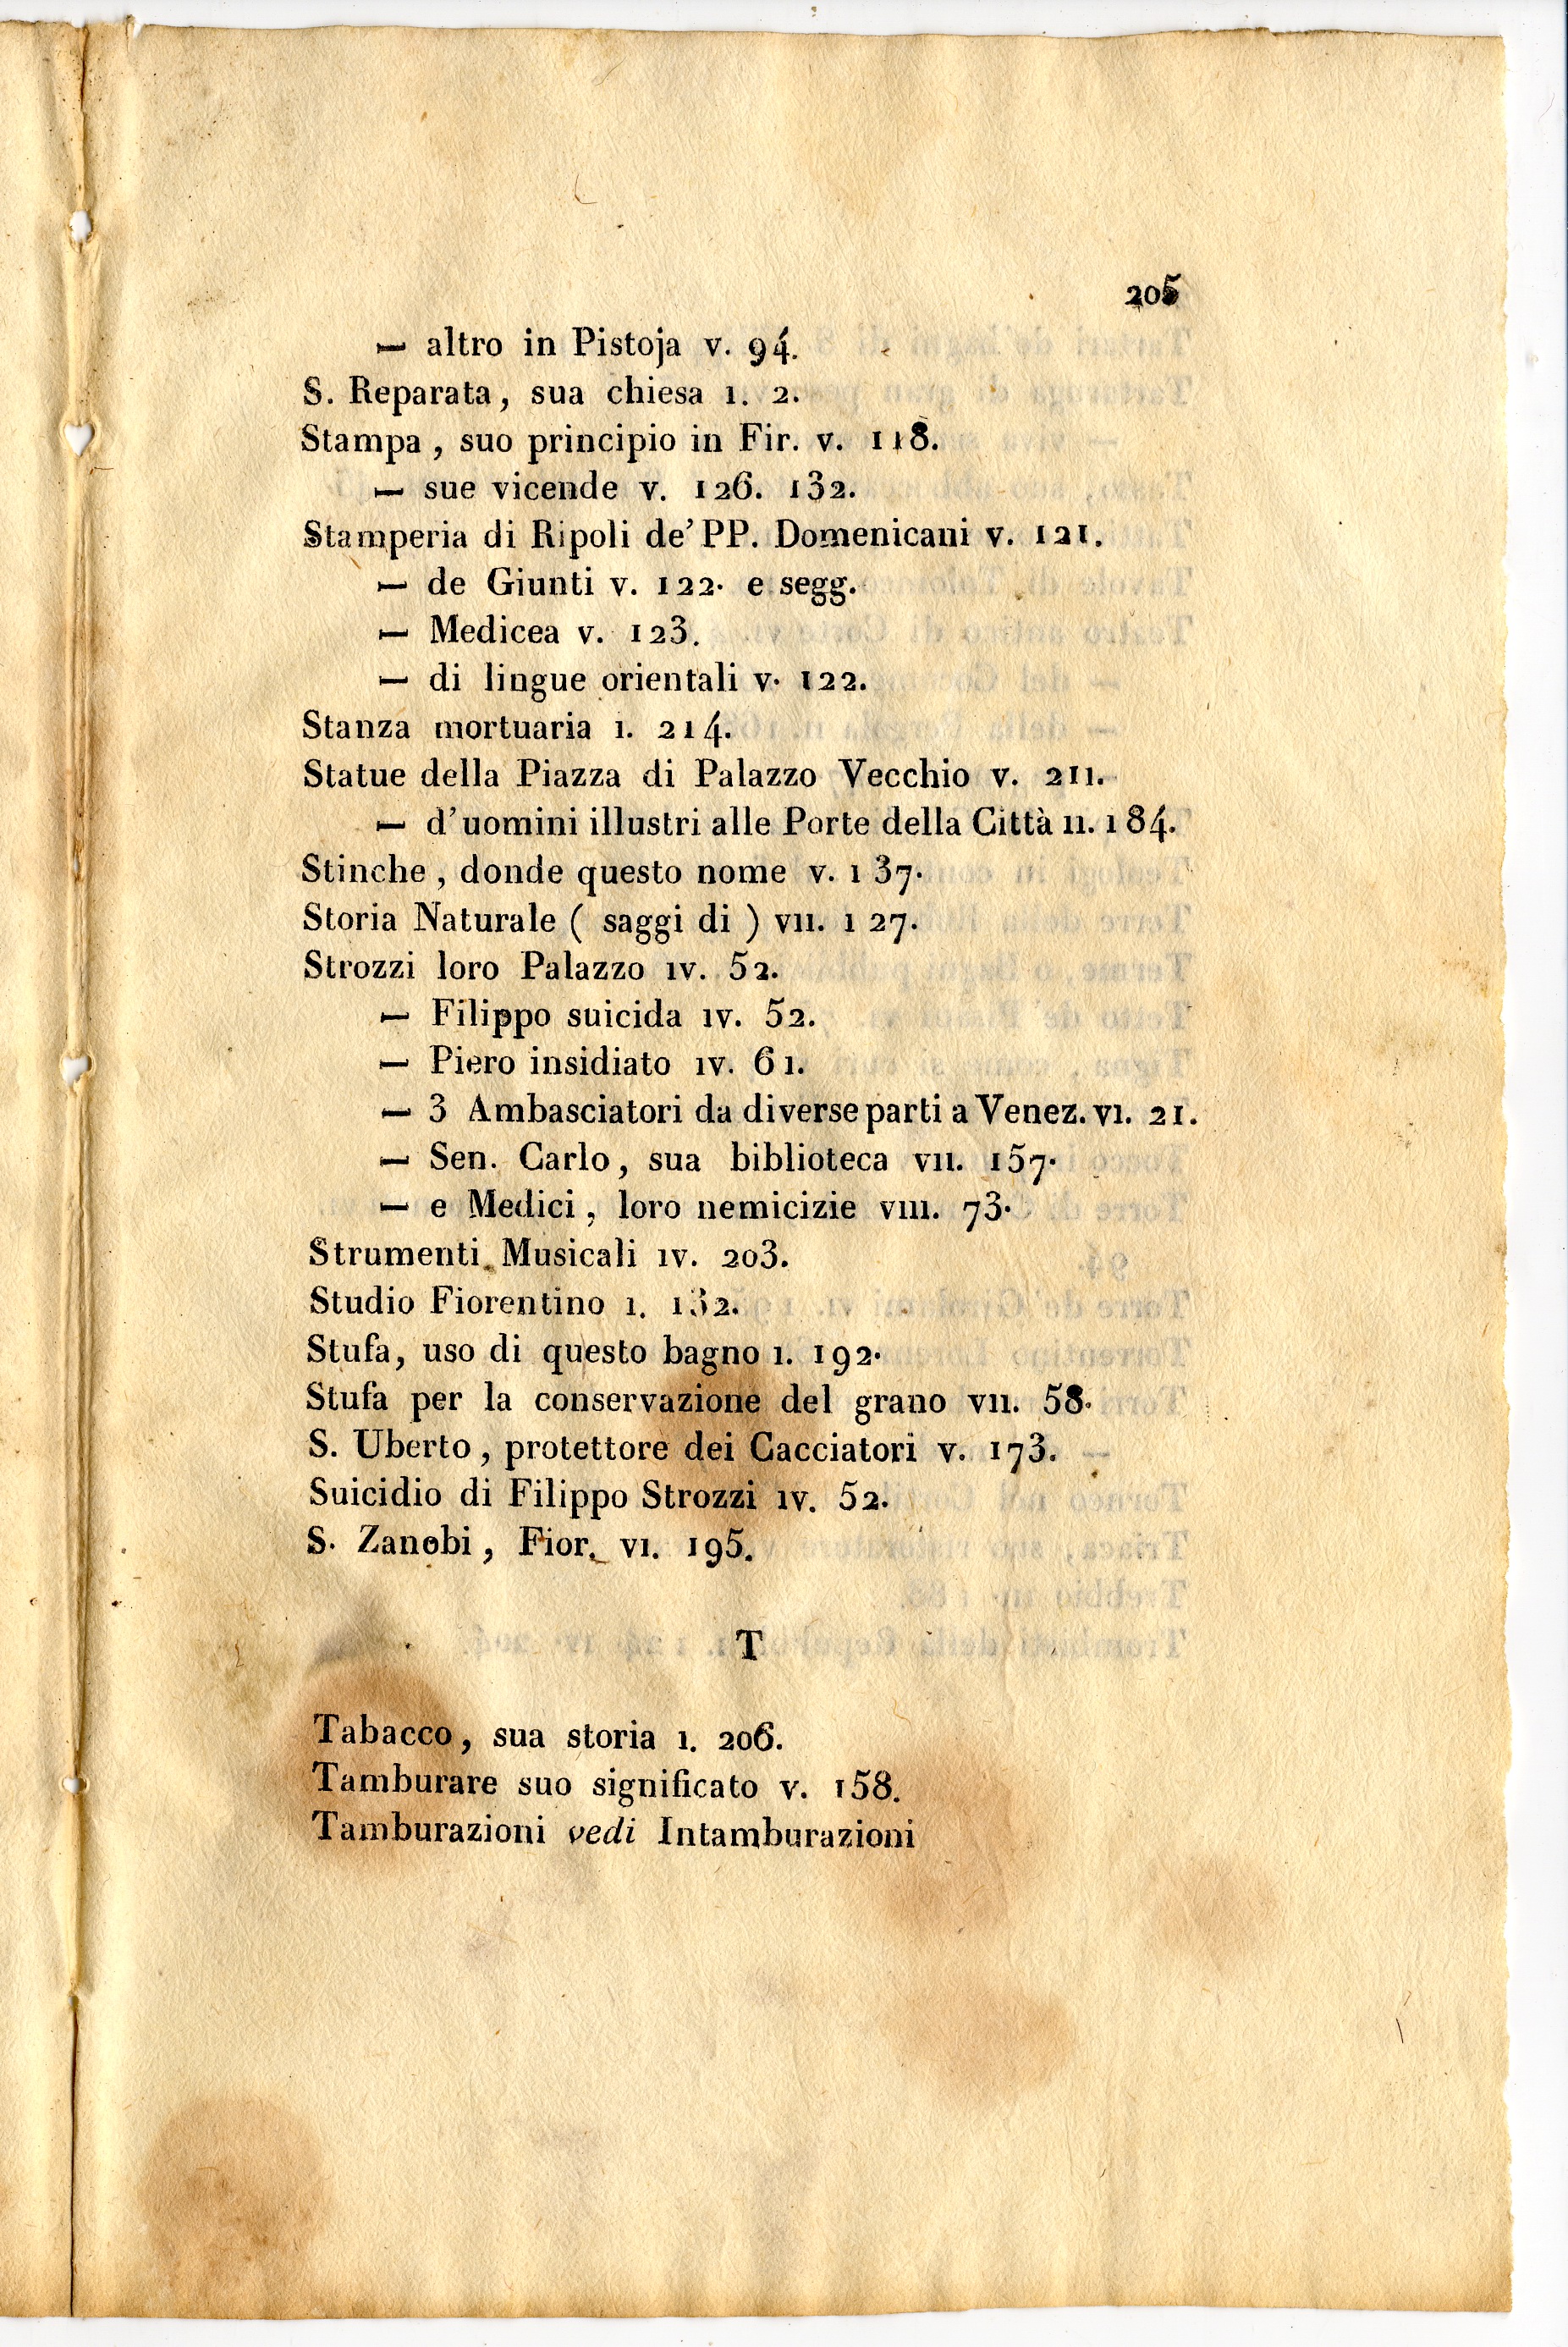 205
— altro in Pistoja v. 94.
S. Reparata, sua chiesa 1. 2.
Stampa, suo principio in Fir. v. 118.
— sue vicende v. 126. 132.
Stamperia di Ripoli de' PP. Domenicani v. 121.
— de Giunti v. 122. e segg.
— Medicea v. 123.
— di lingue orientali v. 122.
Stanza mortuaria 1. 214.
Statue della Piazza di Palazzo Vecchio v. 211.
— d'uomini illustri alle Porte della Città 11. 184.
Stinche, donde questo nome v. 137.
Storia Naturale ( saggi di ) v11. 127.
Strozzi loro Palazzo 1v. 52.
— Filippo suicida 1v. 52.
— Piero insidiato 1v. 61.
— 3 Ambasciatori da diverse parti a Venez. v1. 21.
— Sen. Carlo, sua biblioteca v11. 157.
— e Medici, loro nemicizie v111. 73.
Strumenti Musicali 1v. 203.
Studio Fiorentino 1. 132.
Stufa, uso di questo bagno 1. 192.
Stufa per la conservazione del grano v11. 58.
S. Uberto, protettore dei Cacciatori v. 173.
Suicidio di Filippo Strozzi 1v. 52.
S. Zanobi, Fior. v1. 195.
T
Tabacco, sua storia 1. 206.
Tamburare suo significato v. 158.
Tamburazioni vedi Intamburazioni